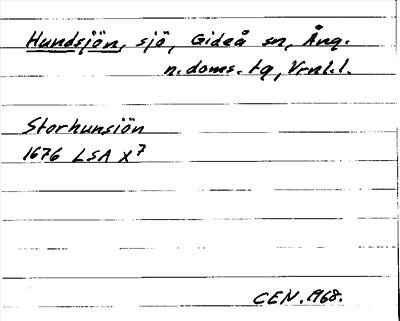 Hundsjön, sjö, Gideå sn, Ång.
n. doms. tg, Vrnl. l.
Storhunsiön
1676 LSA X7
CEN. 1968.